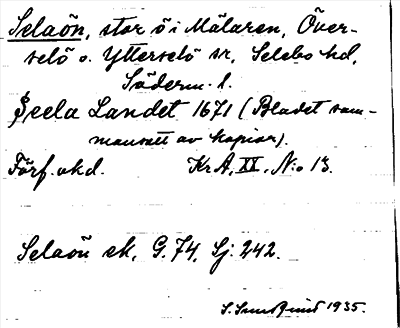 Selaön, stor ö i Mälaren, Över-
selö o. Ytterselö sr, Selebo hd,
Söderm. l.
Seela Landet 1671 (Bladet sam-
mansatt av kopior).
Förf. okd. KrA, XX, N:o 13.
Selaön sk, G. 74, Sj: 242.
1935.